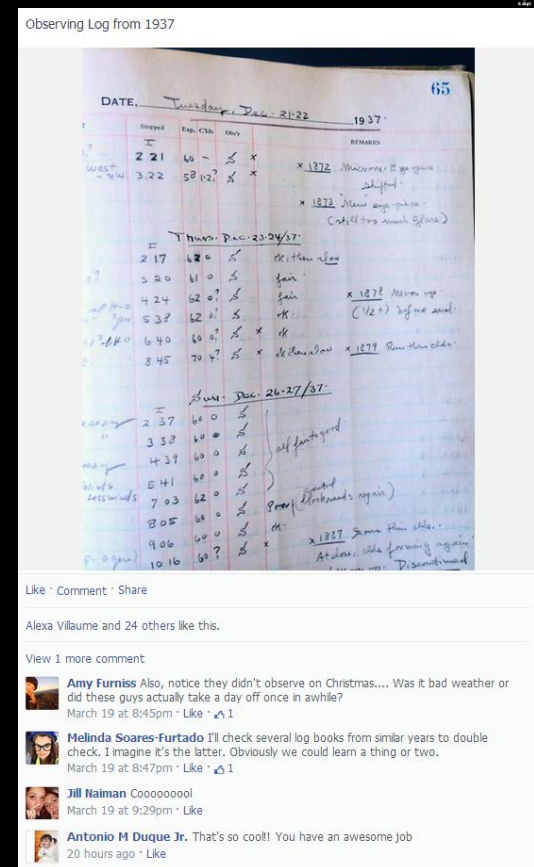 Observing Log from 1937
65
DATE, Tuesday, Dec. 21-22 1937.
Stopped Exp. Clds Obs'r
REMARKS
I
2 21 60 - S x
x 1872
west 3 22 58 1-2? S x
shifted.
x 1873 "New" eye-piece
(still too much glare)
Thurs. Dec. 23-24/37.
I
2 17 62 0 S ok then slow
3 20 61 0 S fair
4 24 62 0? S fair x 1878
5 38 62 0? S ok
6 40 60 0? S x ok
8 45 70 4? S x x 1879 thru clds.
Sun. Dec. 26-27/37.
I
2 37 60 0 S
3 38 60 0 S
4 39 60 0 S all fair to good.
5 41 60 0 S
7 03 62 0 S Poor (
8 05 60 0 S ok.
9 06 60 0 S
10 16 60 ? S x x 1887 Some thin clds..
clds forming again
Discontinued
Like · Comment · Share
Alexa Villaume and 24 others like this.
View 1 more comment
Amy Furniss Also, notice they didn't observe on Christmas.... Was it bad weather or
did these guys actually take a day off once in awhile?
March 19 at 8:45pm · Like · 1
Melinda Soares-Furtado I'll check several log books from similar years to double
check. I imagine it's the latter. Obviously we could learn a thing or two.
March 19 at 8:47pm · Like · 1
Jill Naiman Cooooooool
March 19 at 9:29pm · Like
Antonio M Duque Jr. That's so cool!! You have an awesome job
20 hours ago · Like